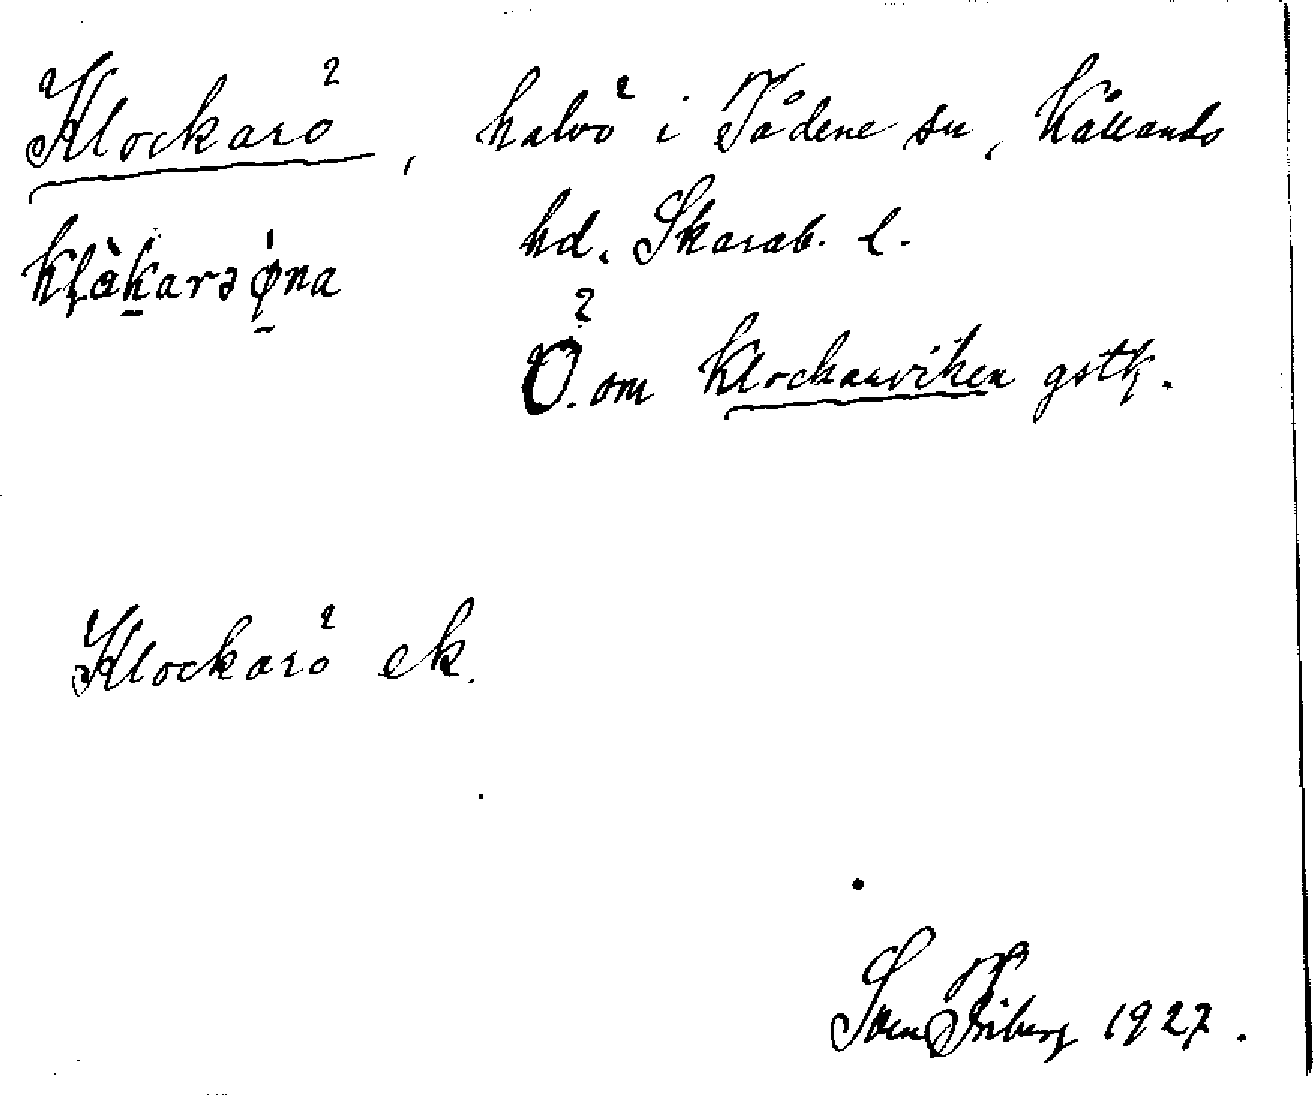 Klockarö, halvö i Tådene sn, Kållands
hd. Skarab. l.
kḷàkarəø̀na
Ö. om Klockareviken gstk.
Klockarö ek.
Sven Friberg 1927.